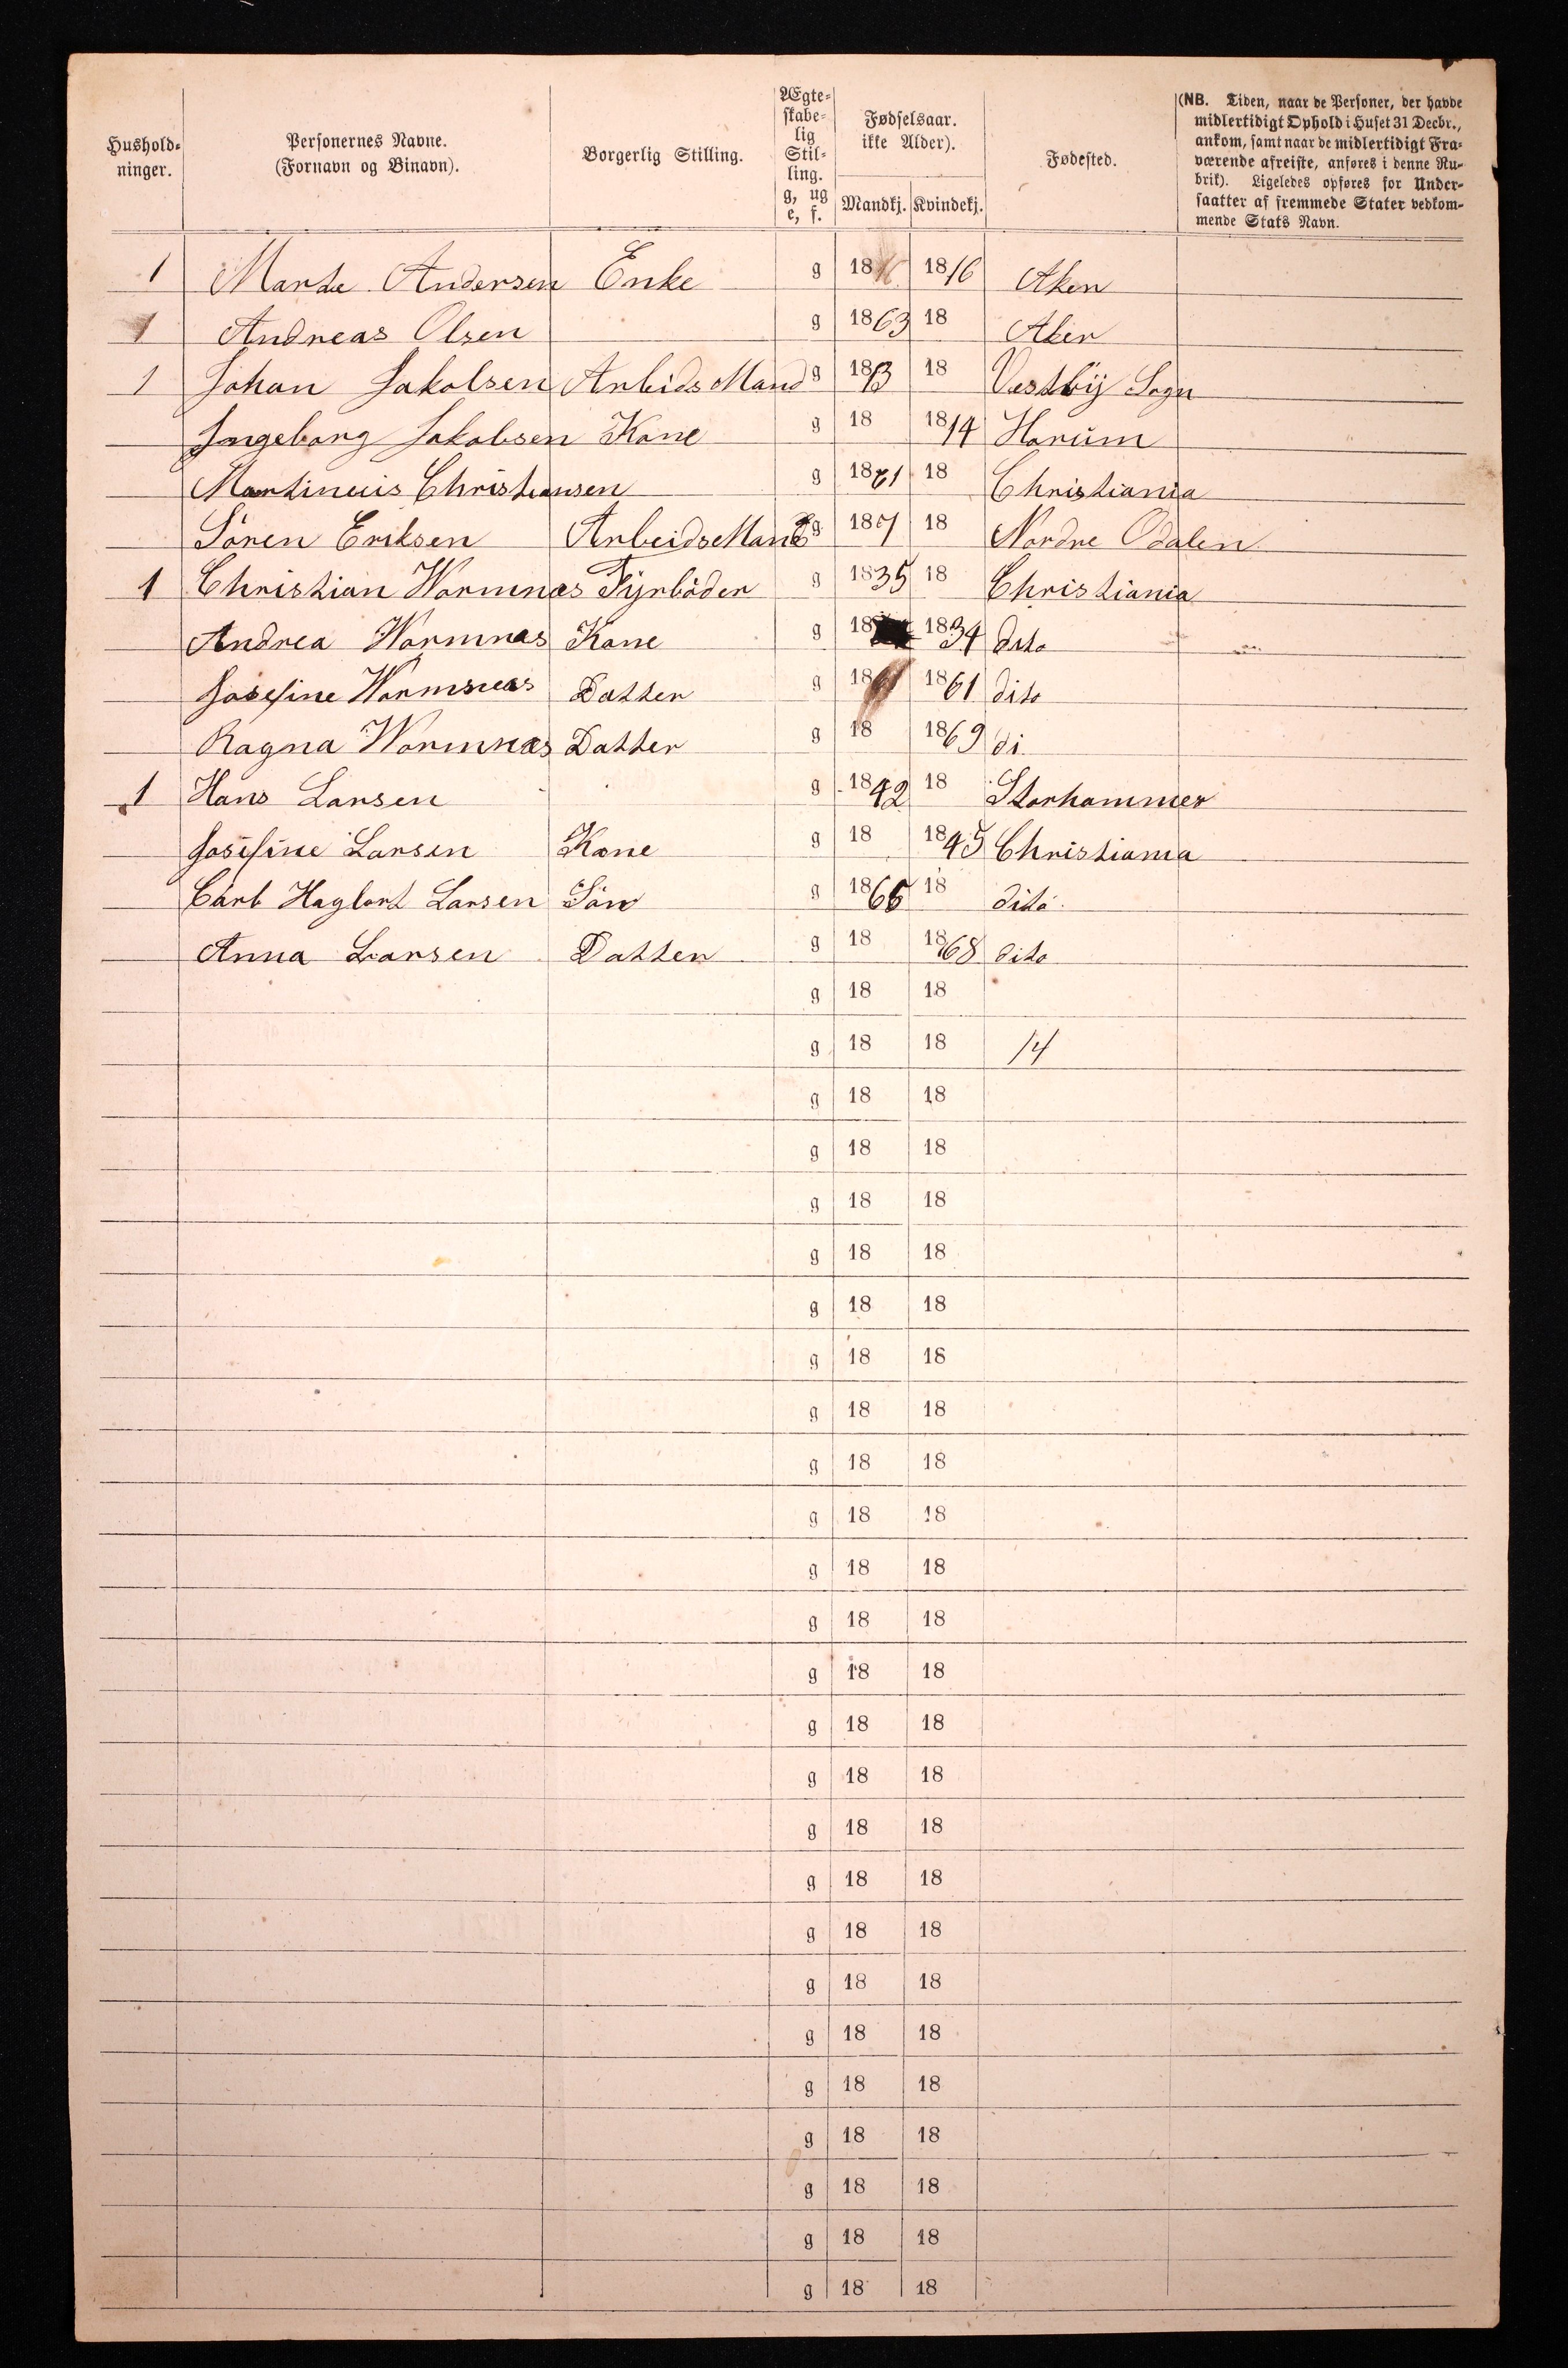 Hushold-
ninger.
Personernes Navne.
(Fornavn og Binavn).
Borgerlig Stilling.
Ægte-
skabe-
lig
Stil-
ling.
g, ug
e, f.
Fødselsaar.
ikke Alder).
Mandkj. Kvindekj.
Fødested.
(NB. Tiden, naar de Personer, der havde
midlertidigt Ophold i Huset 31 Decbr.,
ankom, samt naar de midlertidigt Fra-
værende afreiste, anføres i denne Ru-
brik). Ligeledes opføres for Under-
saatter af fremmede Stater vedkom-
mende Stats Navn.
1 Marte Andersen Enke g 18 1816 Aker
1 Andreas Olsen g 1863 18 Aker
1 Johan Jakolsen Arbeids Mand g 1813 18 Vestbÿ Sogn
Ingeborg Jakobsen Kone g 18 1814 Horüm
Martineus Christiansen g 1861 18 Christiania
Sören Eriksen Arbeidsemand g 18 18 Nordre Odalen
1 Christian Wormnæs Fÿrböder g 1835 18 Christiania
Andrea Wormnæs Kone g 18 1834 dito
Josefine Wormnæs Datter g 18 1861 dito
Ragna Wormnæs Datter g 18 1869 di
1 Hans Larsen g 1842 18 Storhammer
Josefine Larsen Kone g 18 1845 Christiania
Carl Hagbart Larsen Sön g 1866 18 dito
Anna Larsen Datter g 18 1868 dito
g 18 18
g 18 18 14
g 18 18
g 18 18
g 18 18
g 18 18
g 18 18
g 18 18
g 18 18
g 18 18
g 18 18
g 18 18
g 18 18
g 18 18
g 18 18
g 18 18
g 18 18
g 18 18
g 18 18
g 18 18
g 18 18
g 18 18
g 18 18
g 18 18
g 18 18
g 18 18